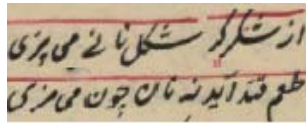 از شکر گر شکل نانے می پزی
طعم قند آید نه نان چون می مزی